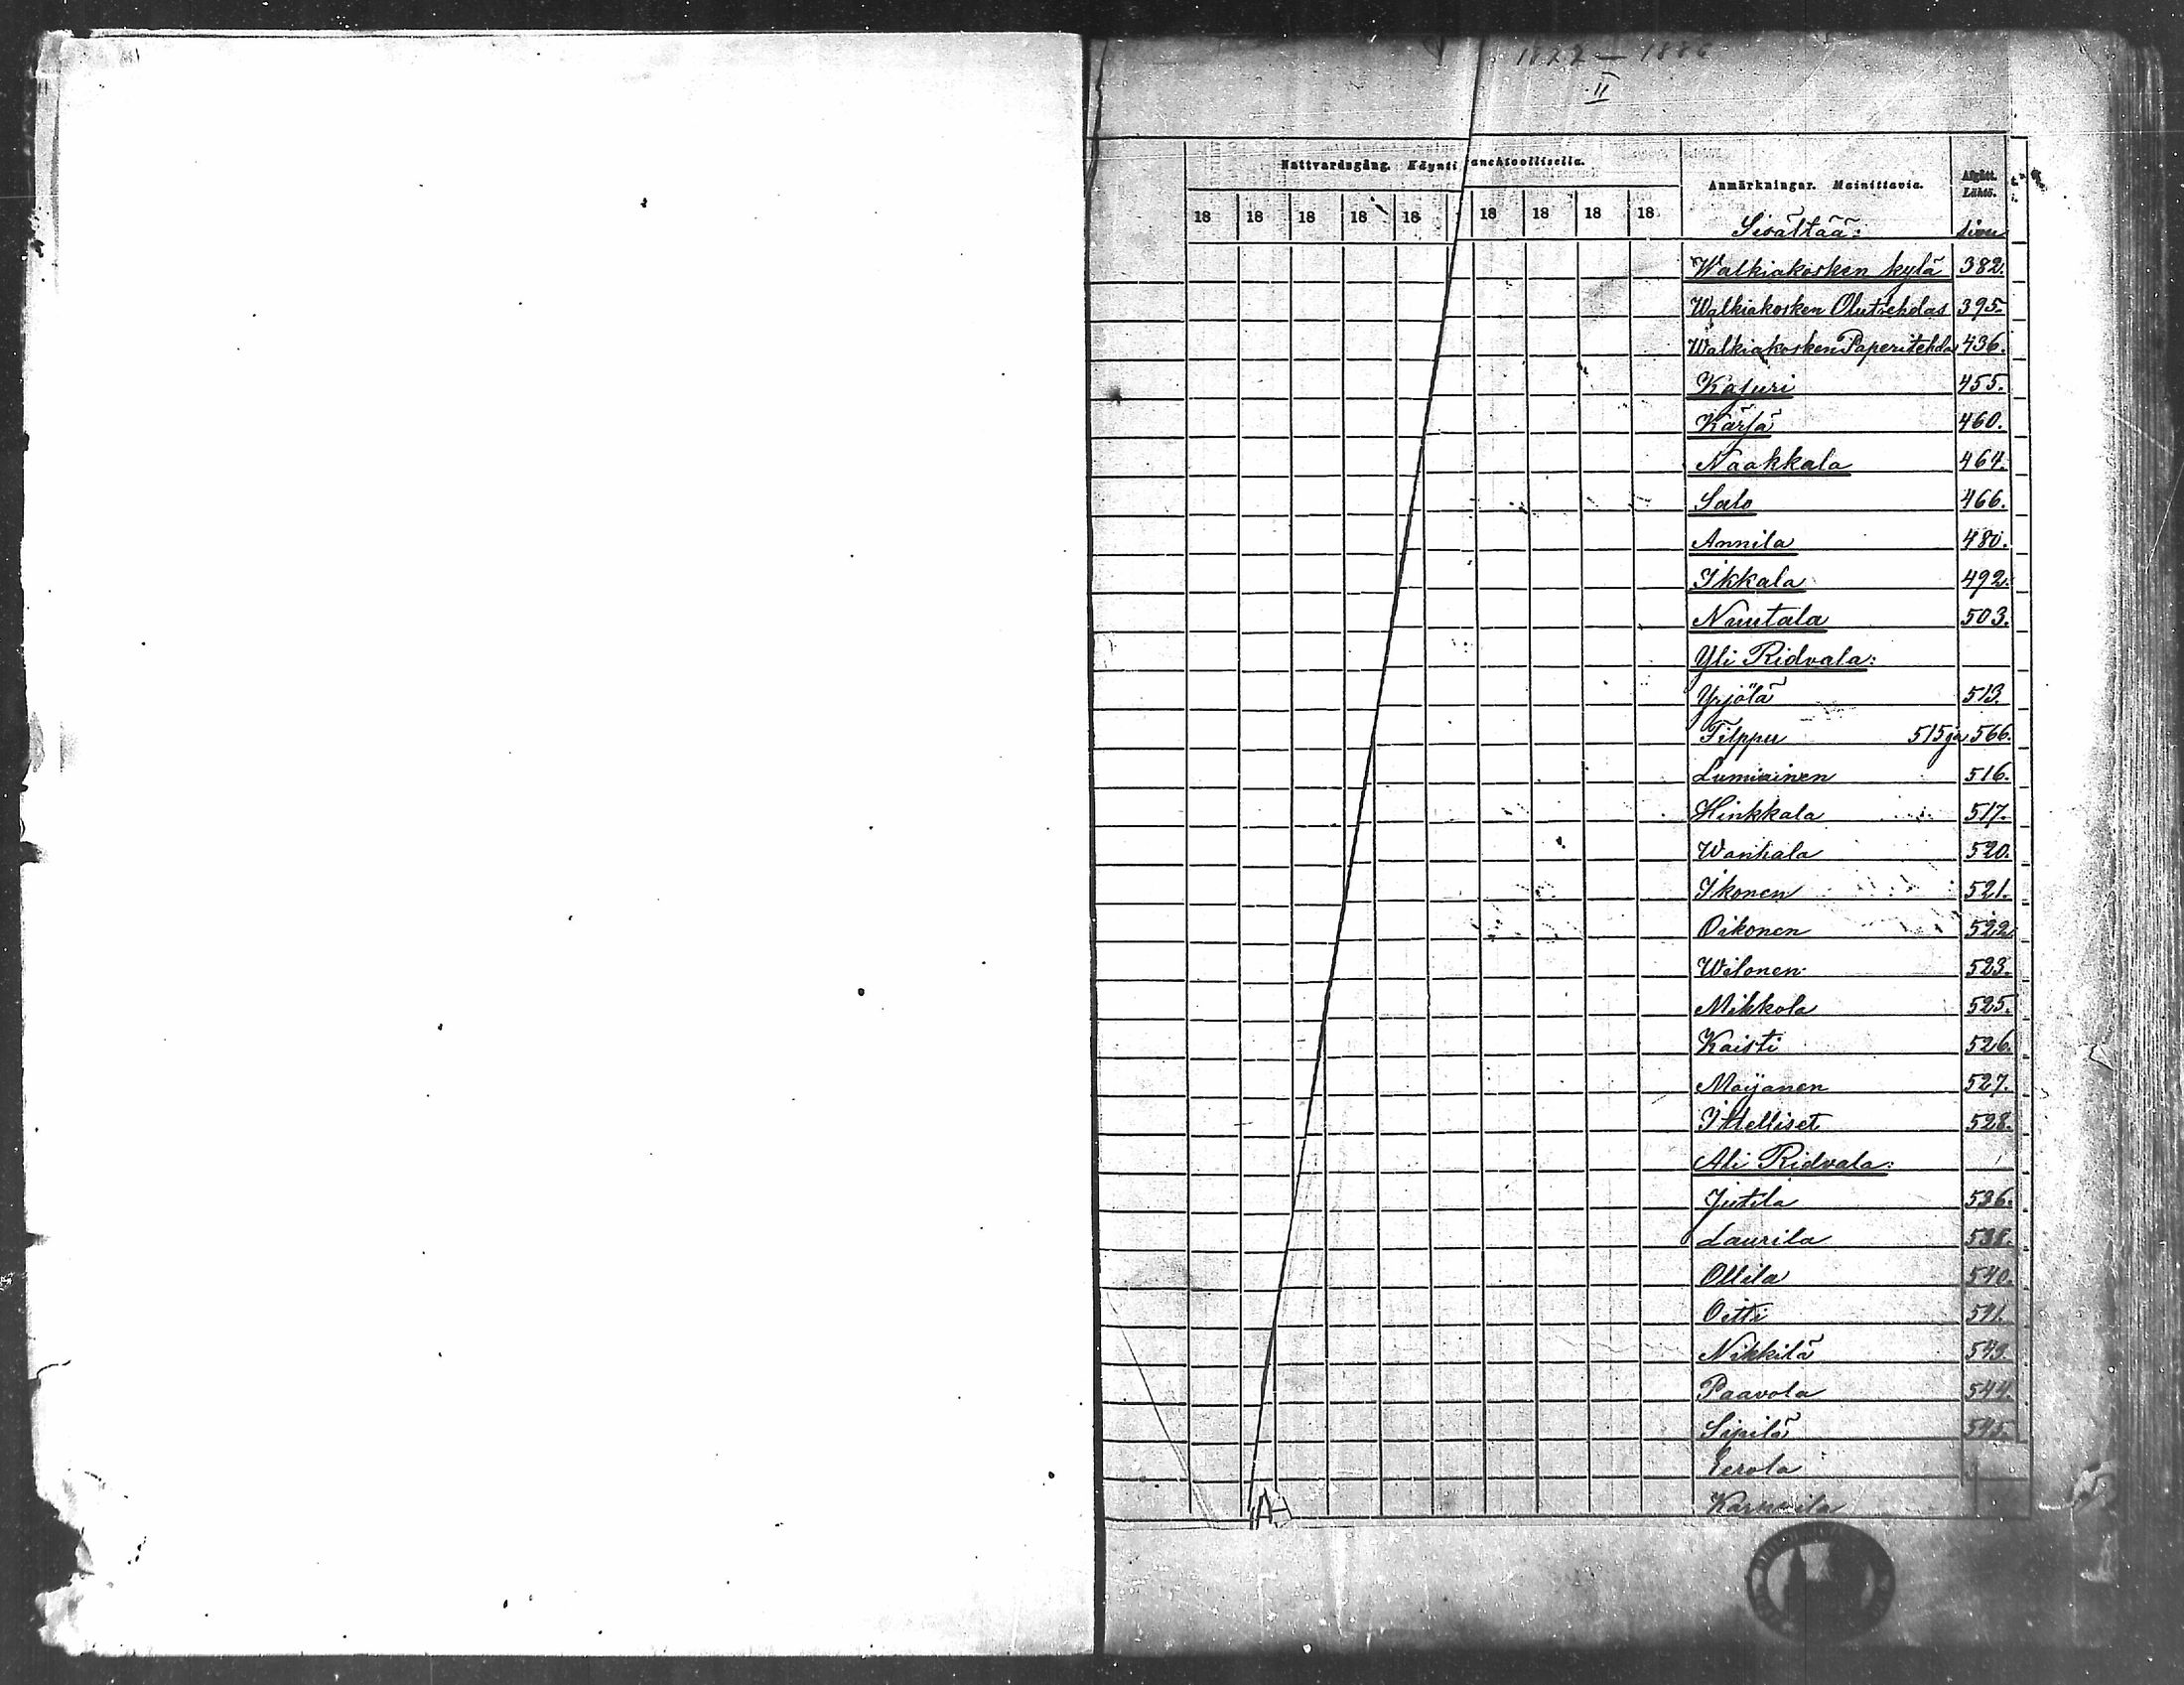 II
Nattvardsgång. Käynti
Anmärkningar. Mainittavia.
Afgått. Lähtö.
18 18 18 18 18 18 18 18 18
Sisältää: sivu
Walkiakosken kylä 382.
Walkiakosken Oluttehdas 395.
Walkiakosken Paperitehdas 436.
Kajuri 455.
Kärjä 460.
Naakkala 464.
Salo 466.
Annila 480.
Ikkala 492.
Nuutala 503.
Yli Ridvala:
Yrjölä 513.
Filppu 515 ja 566.
Lumiainen 516.
Hinkkala 517.
Wanhala 520.
Ikonen 521.
Oikonen 522.
Wilonen 523.
Mikkola 525.
Kaisti 526.
Moijanen 527.
Ittelliset 528.
Ali Ridvala:
Jutila 536.
Laurila 538.
Ollila 540.
Oitti 541.
Nikkilä 543.
Paavola 544.
Sipilä 545.
Eerola